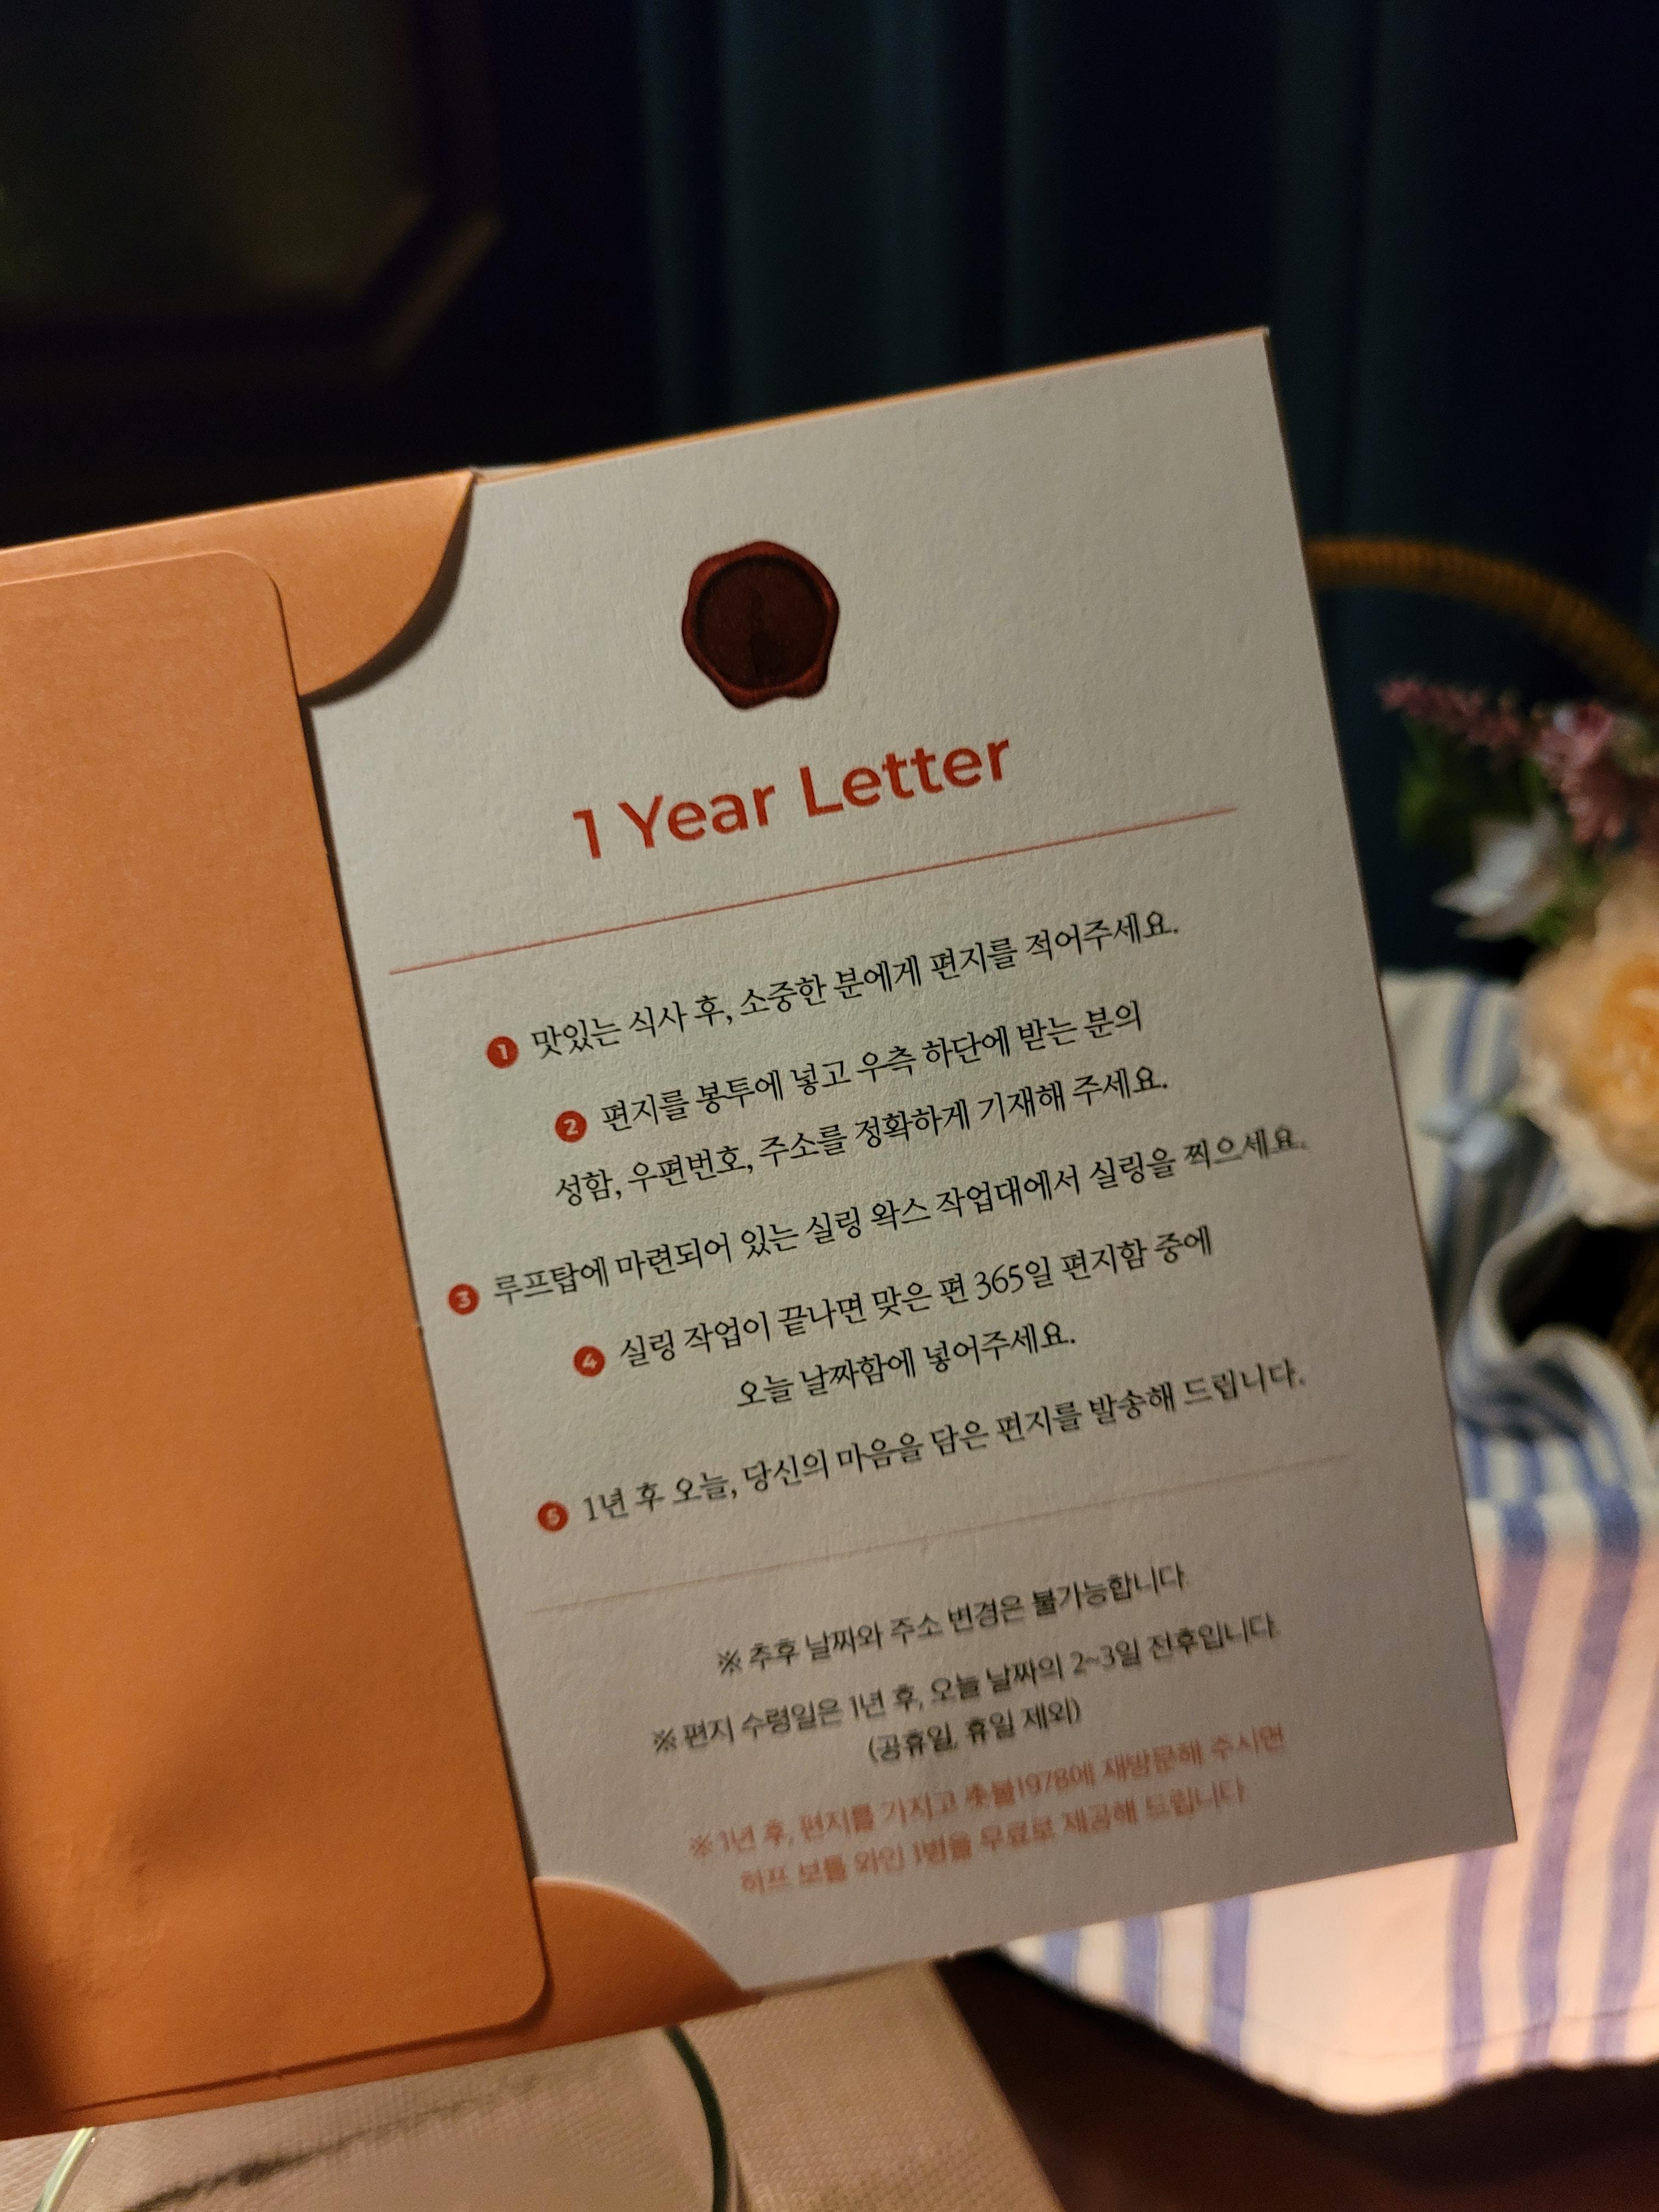 1 Year Letter
1 맛있는 식사 후, 소중한 분에게 편지를 적어주세요.
2 편지를 봉투에 넣고 우측 하단에 받는 분의
성함, 우편번호, 주소를 정확하게 기재해 주세요.
3 루프탑에 마련되어 있는 실링 왁스 작업대에서 실링을 찍으세요.
4 실링 작업이 끝나면 맞은 편 365일 편지함 중에
오늘 날짜함에 넣어주세요.
5 1년 후 오늘, 당신의 마음을 담은 편지를 발송해 드립니다.
※ 추후 날짜와 주소 변경은 불가능합니다.
※ 편지 수령일은 1년 후, 오늘 날짜의 2~3일 전후입니다.
(공휴일, 휴일 제외)
※ 1년 후, 편지를 가지고 촛불1978에 재방문해 주시면
하프 보틀 와인 1병을 무료로 제공해 드립니다.